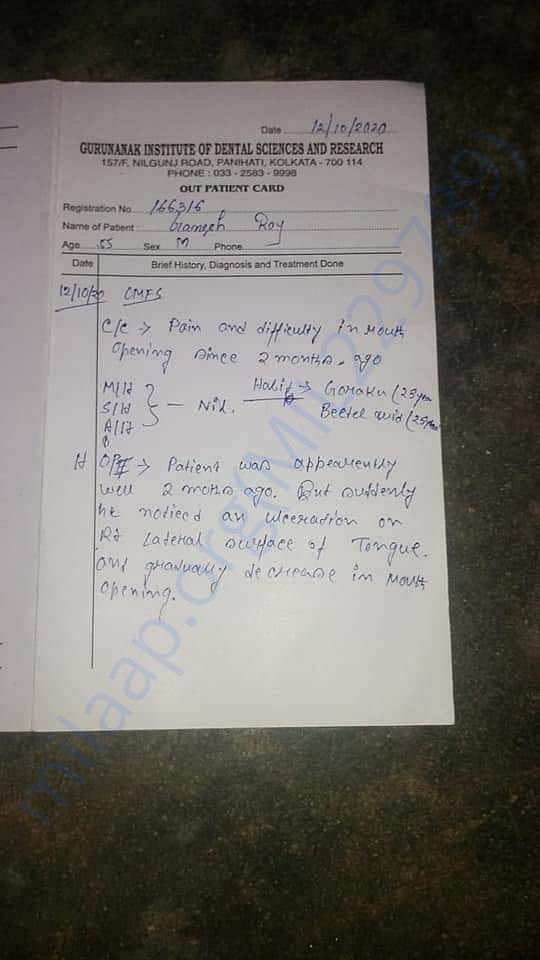 Date 12/10/2020
GURUNANAK INSTITUTE OF DENTAL SCIENCES AND RESEARCH
157/F, NILGUNJ ROAD, PANIHATI, KOLKATA - 700 114
PHONE : 033 - 2583 - 9998
OUT PATIENT CARD
Registration No 166316
Name of Patient : Ganesh Roy
Age 55 Sex M Phone
Date Brief History, Diagnosis and Treatment Done
12/10/20 OMFS
C/C → Pain and difficulty in mouth
opening since 2 months. ago
M/H
S/H
A/H
} — Nil.
Habit → Goraku (25 year
Beetel quid (25 year
H OPI → Patient was appearently
well 2 moths ago. But suddenly
he noticed an ulceration on
Rt Lateral surface of Tongue.
and gradually decrease in mouth
opening.
milaap.org(MIL229789)